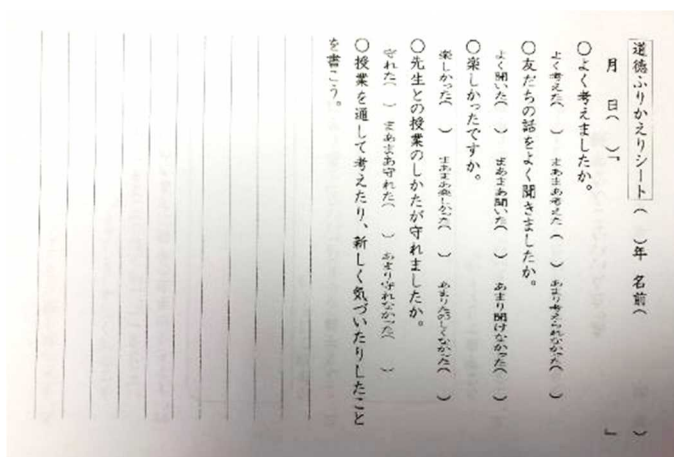 道徳ふりかえりシート（　）年 名前（　　　）
月　日（　）「　　　」
○よく考えましたか。
よく考えた（　） まあまあ考えた（　） あまり考えられなかった（　）
○友だちの話をよく聞きましたか。
よく聞いた（　） まあまあ聞いた（　） あまり聞けなかった（　）
○楽しかったですか。
楽しかった（　） まあまあ楽しかった（　） あまりたのしくなかった（　）
○先生との授業のしかたが守れましたか。
守れた（　） まあまあ守れた（　） あまり守れなかった（　）
○授業を通して考えたり、新しく気づいたりしたこと
を書こう。